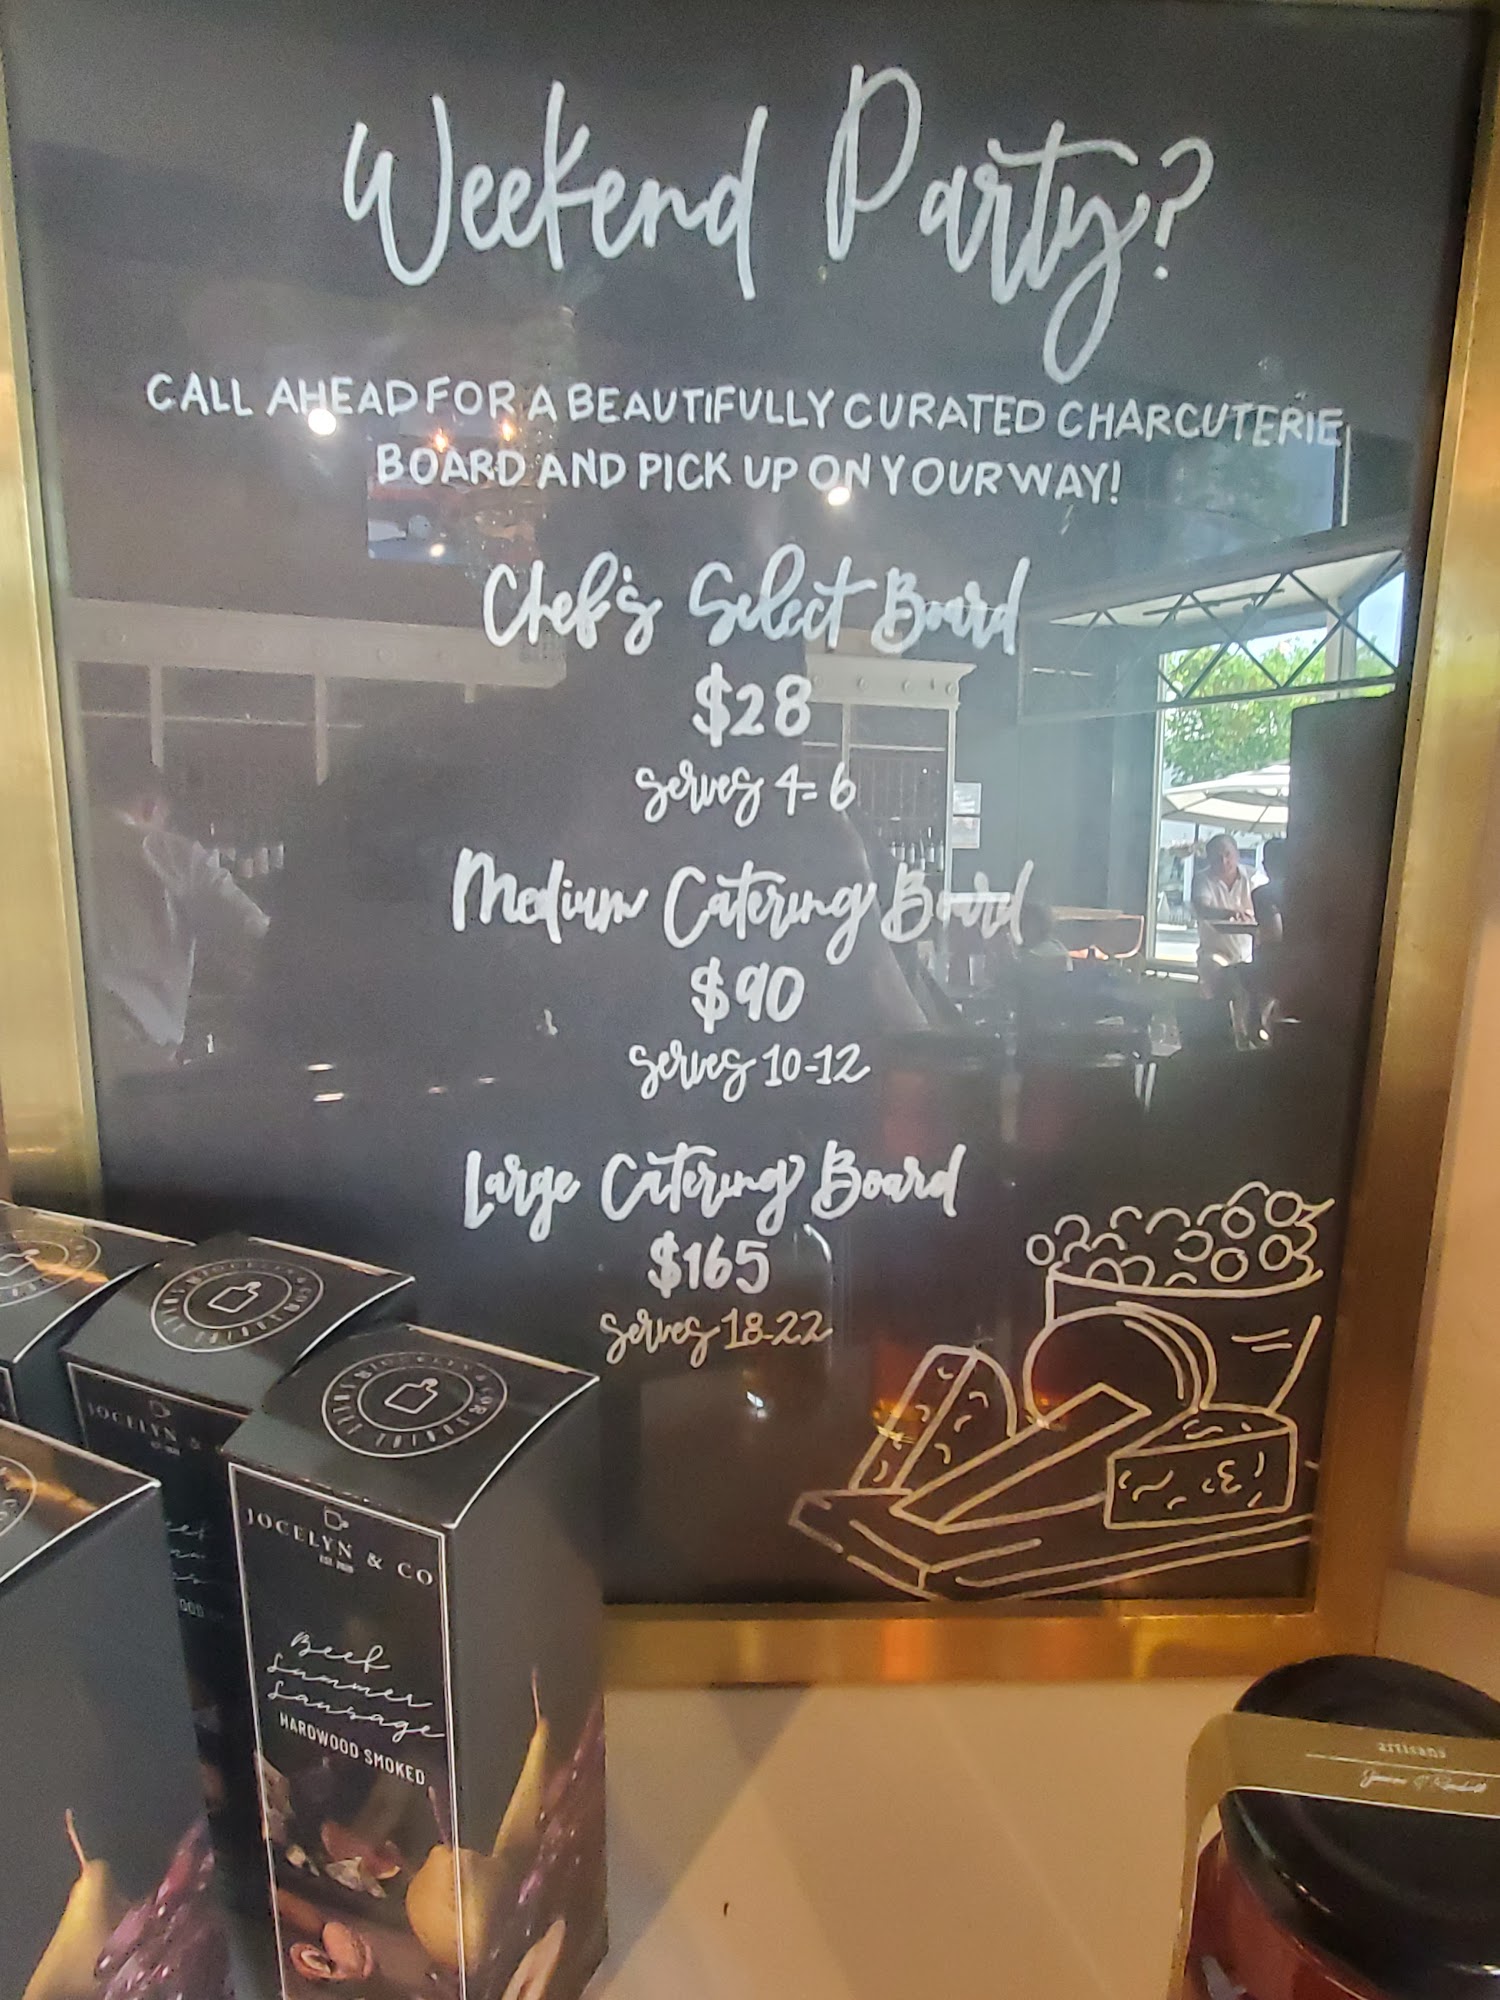 Weekend Party?
CALL AHEAD FOR A BEAUTIFULLY CURATED CHARCUTERIE
BOARD AND PICK UP ON YOUR WAY!
Chef's Select Board
$28
serves 4-6
Medium Catering Board
$90
serves 10-12
Large Catering Board
$165
serves 18-22
JOCELYN &
JOCELYN & CO
EST. 2020
Beef
Summer
Sausage
HARDWOOD SMOKED
artisans